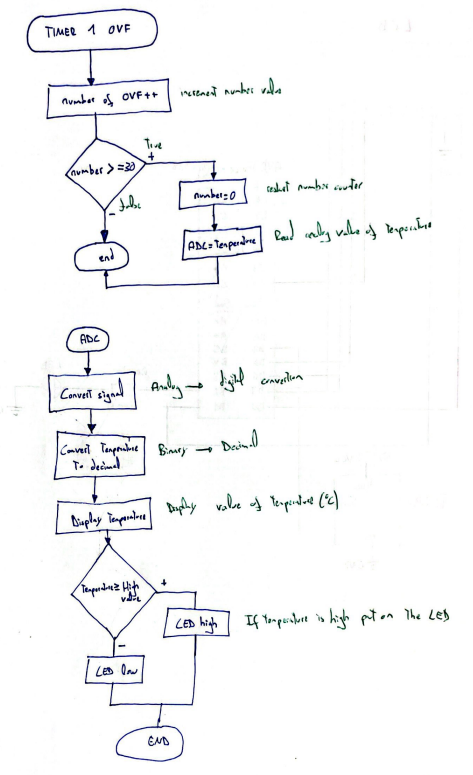 TIMER 1 OVF
number of OVF++
increment number value
True
+
number >=30
- false
number=0
restart number counter
ADC=Temperature
Read analog value of Temperature
end
ADC
Convert signal
Analog → digital convertion
Convert Temperature
To decimal
Binary → Decimal
Display Temperature
Display value of Temperature (°C)
Temperature ≥ High
value
+
LED high
If temperature is high put on The LED
-
LED low
END